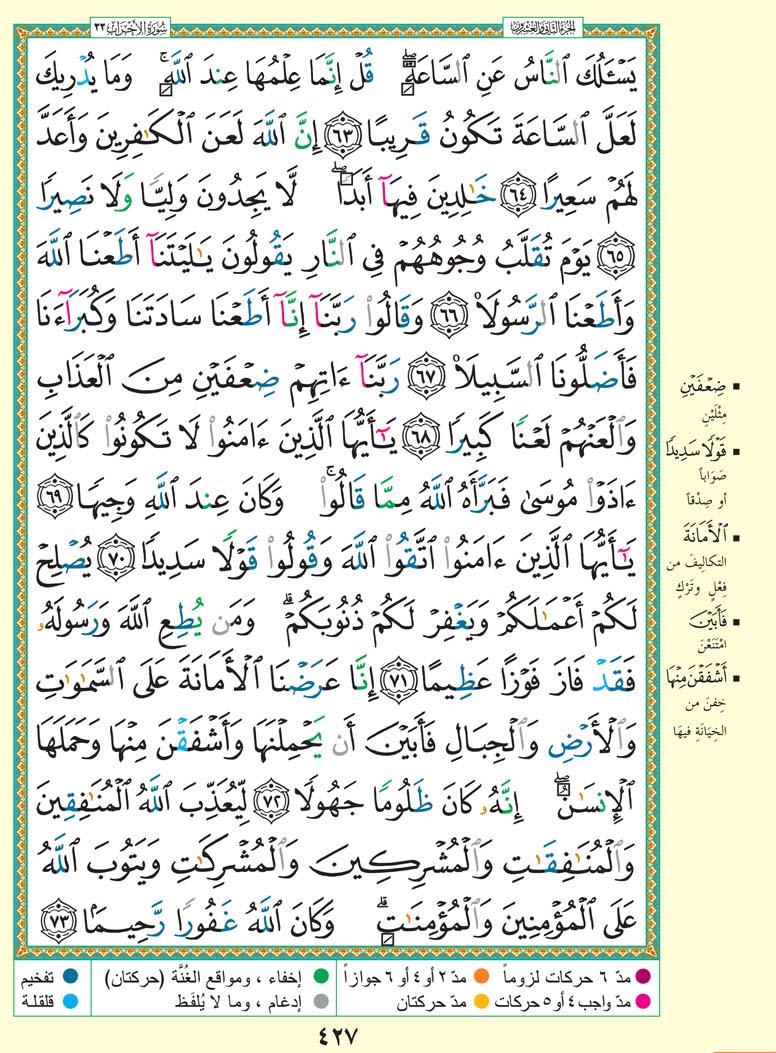 الجزء الثاني والعشرون
سورة الأحزاب ٣٣
يَسْـَٔلُكَ ٱلنَّاسُ عَنِ ٱلسَّاعَةِۖ قُلْ إِنَّمَا عِلْمُهَا عِندَ ٱللَّهِۚ وَمَا يُدْرِيكَ
لَعَلَّ ٱلسَّاعَةَ تَكُونُ قَرِيبًا ٦٣ إِنَّ ٱللَّهَ لَعَنَ ٱلْكَٰفِرِينَ وَأَعَدَّ
لَهُمْ سَعِيرًا ٦٤ خَٰلِدِينَ فِيهَآ أَبَدًاۖ لَّا يَجِدُونَ وَلِيًّا وَلَا نَصِيرًا
٦٥ يَوْمَ تُقَلَّبُ وُجُوهُهُمْ فِى ٱلنَّارِ يَقُولُونَ يَٰلَيْتَنَآ أَطَعْنَا ٱللَّهَ
وَأَطَعْنَا ٱلرَّسُولَا۠ ٦٦ وَقَالُوا۟ رَبَّنَآ إِنَّآ أَطَعْنَا سَادَتَنَا وَكُبَرَآءَنَا
فَأَضَلُّونَا ٱلسَّبِيلَا۠ ٦٧ رَبَّنَآ ءَاتِهِمْ ضِعْفَيْنِ مِنَ ٱلْعَذَابِ
وَٱلْعَنْهُمْ لَعْنًا كَبِيرًا ٦٨ يَٰٓأَيُّهَا ٱلَّذِينَ ءَامَنُوا۟ لَا تَكُونُوا۟ كَٱلَّذِينَ
ءَاذَوْا۟ مُوسَىٰ فَبَرَّأَهُ ٱللَّهُ مِمَّا قَالُوا۟ۚ وَكَانَ عِندَ ٱللَّهِ وَجِيهًا ٦٩
يَٰٓأَيُّهَا ٱلَّذِينَ ءَامَنُوا۟ ٱتَّقُوا۟ ٱللَّهَ وَقُولُوا۟ قَوْلًا سَدِيدًا ٧٠ يُصْلِحْ
لَكُمْ أَعْمَٰلَكُمْ وَيَغْفِرْ لَكُمْ ذُنُوبَكُمْۗ وَمَن يُطِعِ ٱللَّهَ وَرَسُولَهُۥ
فَقَدْ فَازَ فَوْزًا عَظِيمًا ٧١ إِنَّا عَرَضْنَا ٱلْأَمَانَةَ عَلَى ٱلسَّمَٰوَٰتِ
وَٱلْأَرْضِ وَٱلْجِبَالِ فَأَبَيْنَ أَن يَحْمِلْنَهَا وَأَشْفَقْنَ مِنْهَا وَحَمَلَهَا
ٱلْإِنسَٰنُۖ إِنَّهُۥ كَانَ ظَلُومًا جَهُولًا ٧٢ لِّيُعَذِّبَ ٱللَّهُ ٱلْمُنَٰفِقِينَ
وَٱلْمُنَٰفِقَٰتِ وَٱلْمُشْرِكِينَ وَٱلْمُشْرِكَٰتِ وَيَتُوبَ ٱللَّهُ
عَلَى ٱلْمُؤْمِنِينَ وَٱلْمُؤْمِنَٰتِۗ وَكَانَ ٱللَّهُ غَفُورًا رَّحِيمًا ٧٣
▪ ضِعْفَيْنِ
مِثْلَيْنِ
▪ قَوْلًا سَدِيدًا
صَوَاباً
أو صِدْقاً
▪ ٱلْأَمَانَةَ
التكاليفَ من
فِعْلٍ وتَرْكٍ
▪ فَأَبَيْنَ
امْتَنَعْنَ
▪ أَشْفَقْنَ مِنْهَا
خِفنَ من
الخِيَانَةِ فيهَا
مدّ ٦ حركات لزوماً
مدّ ٢ أو ٤ أو ٦ جوازاً
إخفاء ، ومواقع الغُنَّة (حركتان)
تفخيم
مدّ واجب ٤ أو ٥ حركات
مدّ حركتان
إدغام ، وما لا يُلفَظ
قلقلة
٤٢٧